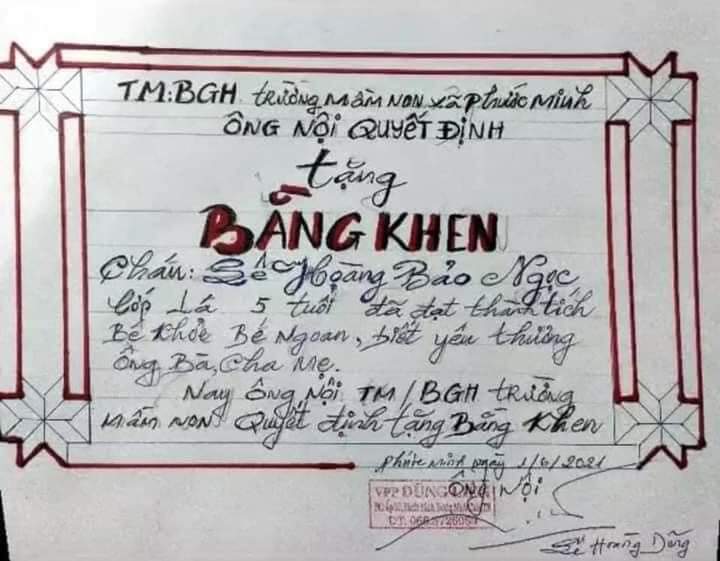 TM:BGH trường mầm non xã Phước Minh
ÔNG NỘI QUYẾT ĐỊNH
tặng
BẰNG KHEN
Cháu: Lê Hoàng Bảo Ngọc
Lớp Lá 5 tuổi đã đạt thành tích
Bé Khỏe Bé Ngoan, biết yêu thương
Ông Bà, Cha Mẹ.
Nay ông Nội TM/BGH trường
mầm non Quyết định tặng Bằng Khen
Phước Minh ngày 1/6/2021
ÔNG NỘI
VPP DŨNG
ĐT.
Lê Hoàng Dũng